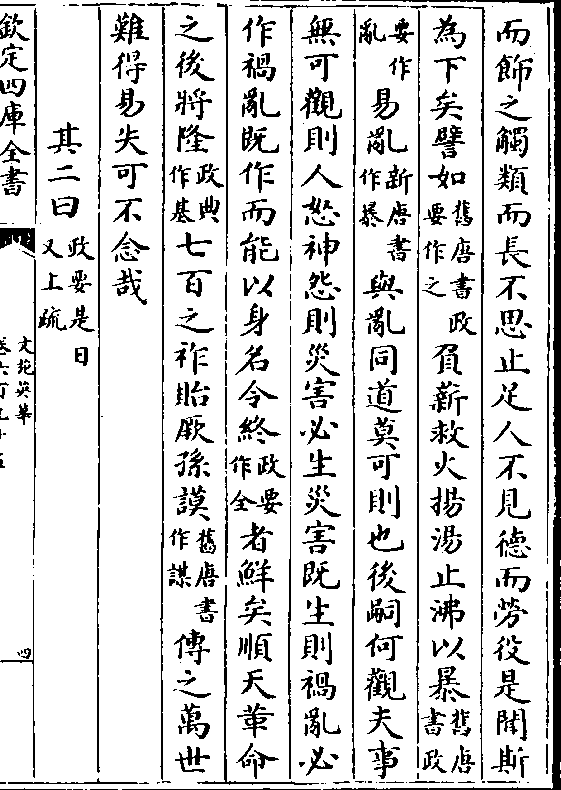 而飾之觸類而長不思止足人不見德而勞役是聞斯
為下矣譬如舊唐書政要作之負薪救火揚湯止沸以暴舊唐書政
要作亂易亂新唐書作暴與亂同道莫可則也後嗣何觀夫事
無可觀則人怒神怨則災害必生災害既生則禍亂必
作禍亂既作而能以身名令終政要作全者鮮矣順天革命
之後將隆政典作基七百之祚貽厥孫謨舊唐書作謀傳之萬世
難得易失可不念哉
其二曰政要是日又上疏
欽定四庫全書
文苑英華
卷六百九十五
四